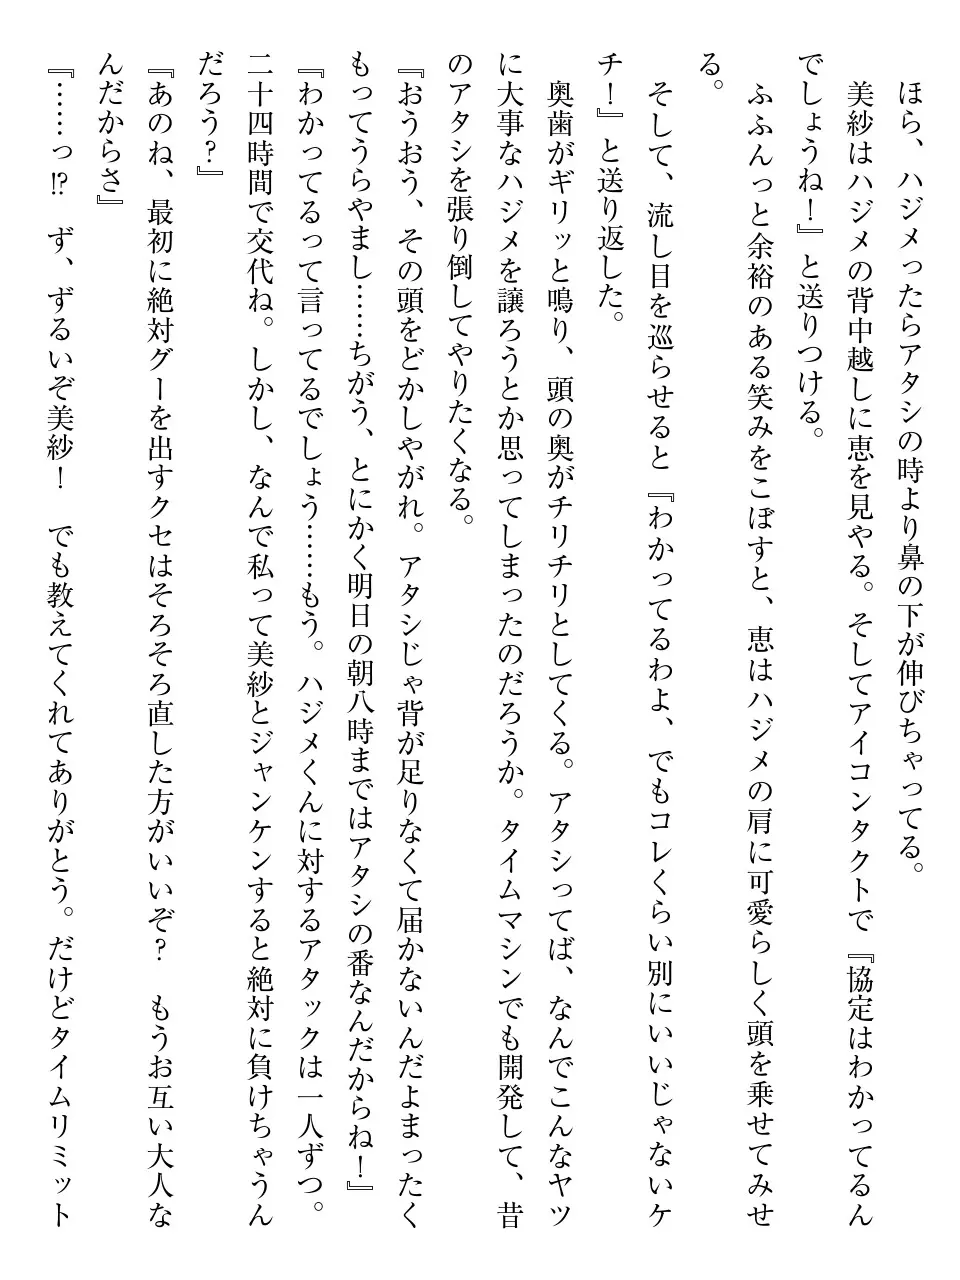 ほら、ハジメったらアタシの時より鼻の下が伸びちゃってる。
美紗はハジメの背中越しに恵を見やる。そしてアイコンタクトで『協定はわかってるん
でしょうね！』と送りつける。
ふふんっと余裕のある笑みをこぼすと、恵はハジメの肩に可愛らしく頭を乗せてみせ
る。
そして、流し目を巡らせると『わかってるわよ、でもコレくらい別にいいじゃないケ
チ！』と送り返した。
奥歯がギリッと鳴り、頭の奥がチリチリとしてくる。アタシってば、なんでこんなヤツ
に大事なハジメを譲ろうとか思ってしまったのだろうか。タイムマシンでも開発して、昔
のアタシを張り倒してやりたくなる。
『おうおう、その頭をどかしやがれ。アタシじゃ背が足りなくて届かないんだよまったく
もってうらやまし……ちがう、とにかく明日の朝八時まではアタシの番なんだからね！』
『わかってるって言ってるでしょう……もう。ハジメくんに対するアタックは一人ずつ。
二十四時間で交代ね。しかし、なんで私って美紗とジャンケンすると絶対に負けちゃうん
だろう？』
『あのね、最初に絶対グーを出すクセはそろそろ直した方がいいぞ？　もうお互い大人な
んだからさ』
『……っ⁉　ず、ずるいぞ美紗！　でも教えてくれてありがとう。だけどタイムリミット